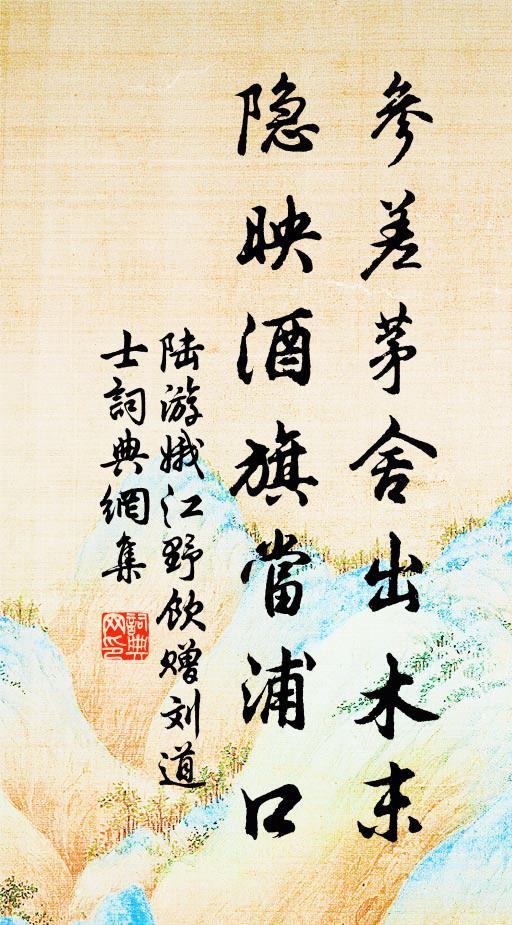 參差茅舍出木末
隐映酒旗當浦口
陆游娥江野飲赠刘道
士詞典網集
詞典
网印